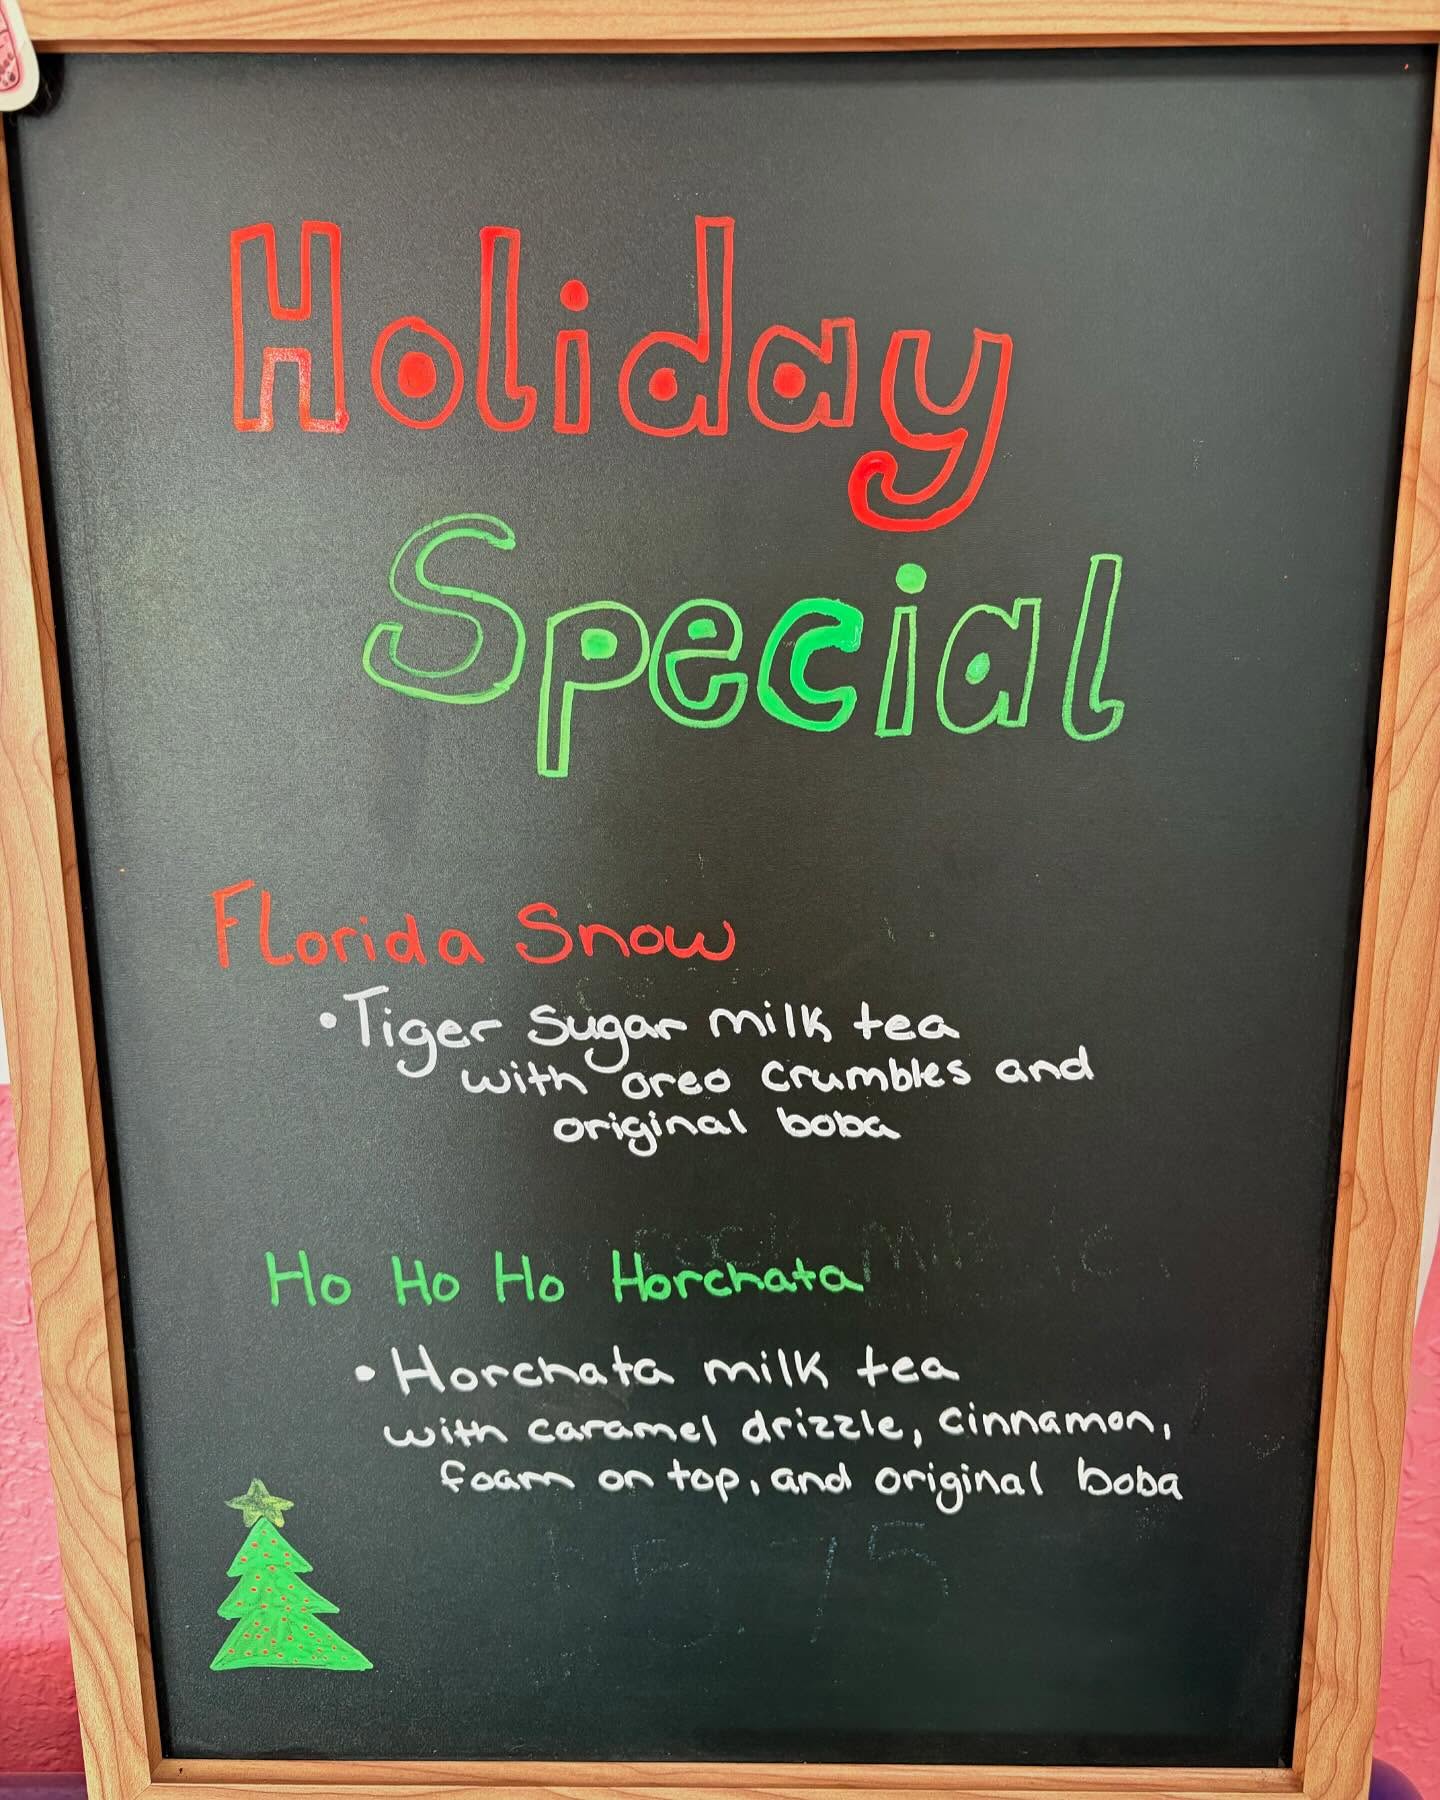 Holiday
Special
Florida Snow
•Tiger Sugar milk tea
with oreo crumbles and
original boba
Ho Ho Ho Horchata
•Horchata milk tea
with caramel drizzle, cinnamon,
foam on top, and original boba